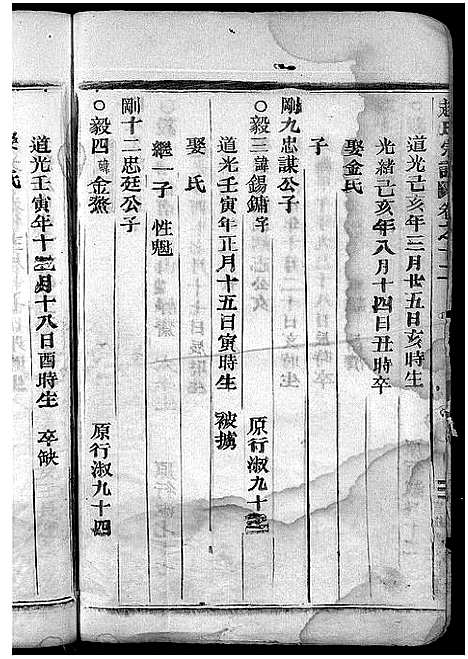 趙氏宗譜
道光己亥年三月廿五日亥時生
光緒己亥年八月十四日丑時卒
娶金氏
子
剛九忠謀公子
○毅三諱錫鏞字 原行淑九十三
道光壬寅年正月十五日寅時生 被擄
娶 氏
繼一子 性魁
剛十二忠廷公子
○毅四諱金燾 原行淑九十四
道光壬寅年十二月十八日酉時生 卒缺
娶 氏